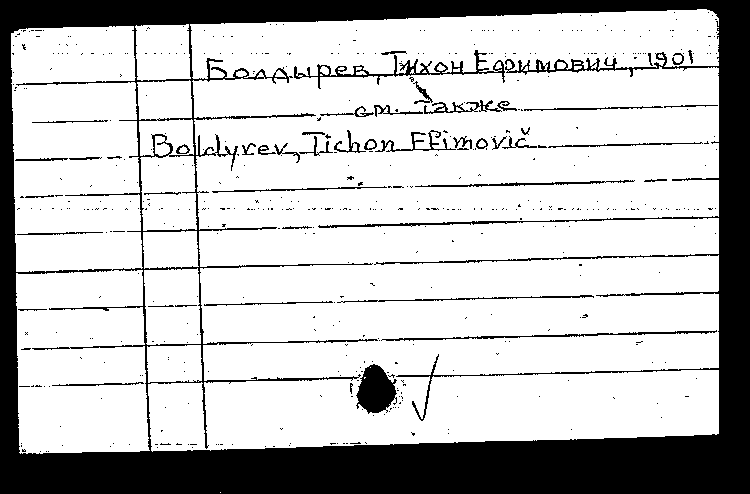 Болдырев, Тихон Ефимович, 1901
см. также
Boldyrev, Tichon Efimovič